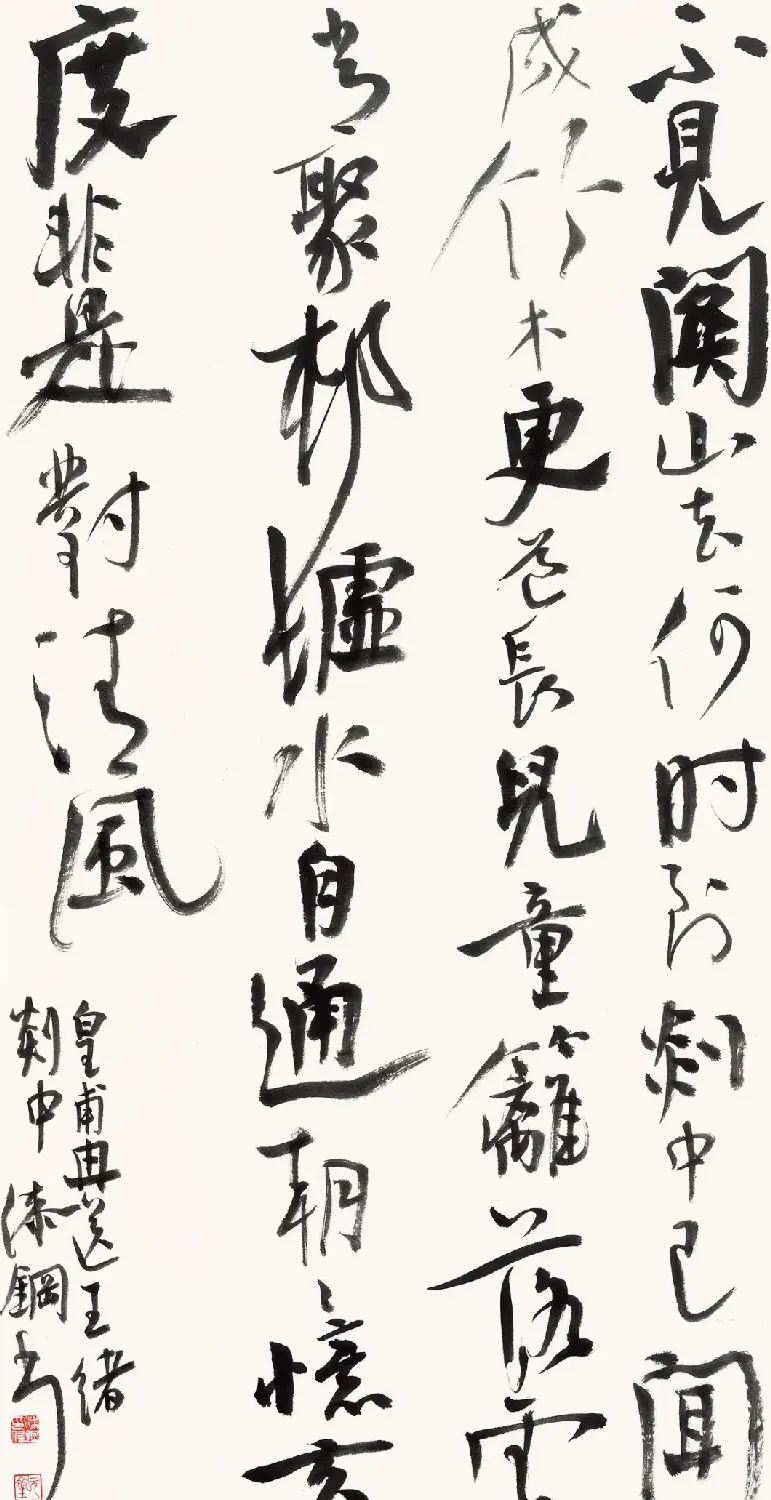 不見關山去何时到剡中已聞
成竹木更道長兒童籬落雲
常聚村墟水自通朝〻憶玄
度非是對清風
皇甫冉送王緒
剡中漆鋼書